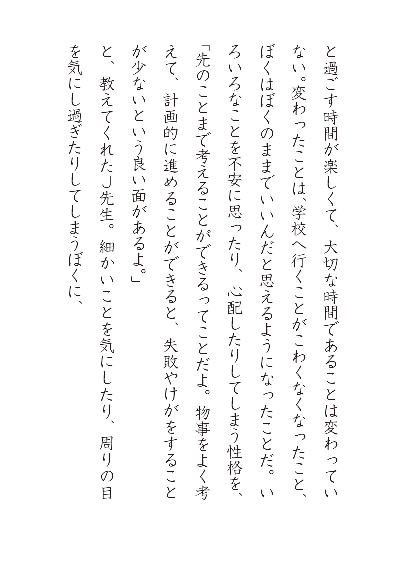 と過ごす時間が楽しくて、大切な時間であることは変わってい
ない。変わったことは、学校へ行くことがこわくなくなったこと、
ぼくはぼくのままでいいんだと思えるようになったことだ。い
ろいろなことを不安に思ったり、心配したりしてしまう性格を、
「先のことまで考えることができるってことだよ。物事をよく考
えて、計画的に進めることができると、失敗やけがをすること
が少ないという良い面があるよ。」
と、教えてくれたJ先生。細かいことを気にしたり、周りの目
を気にし過ぎたりしてしまうぼくに、